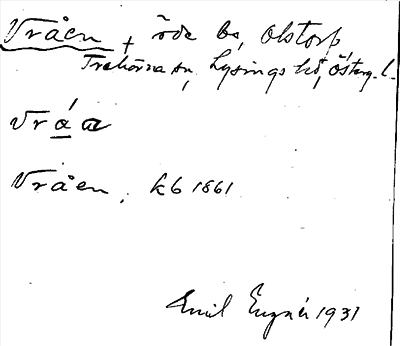 Vråen, öde bs, Olstorp
Trehörna sn, Lysings hd, Österg. l.
vrá̱a
Vråen, kb 1861
Emil Engnér 1931